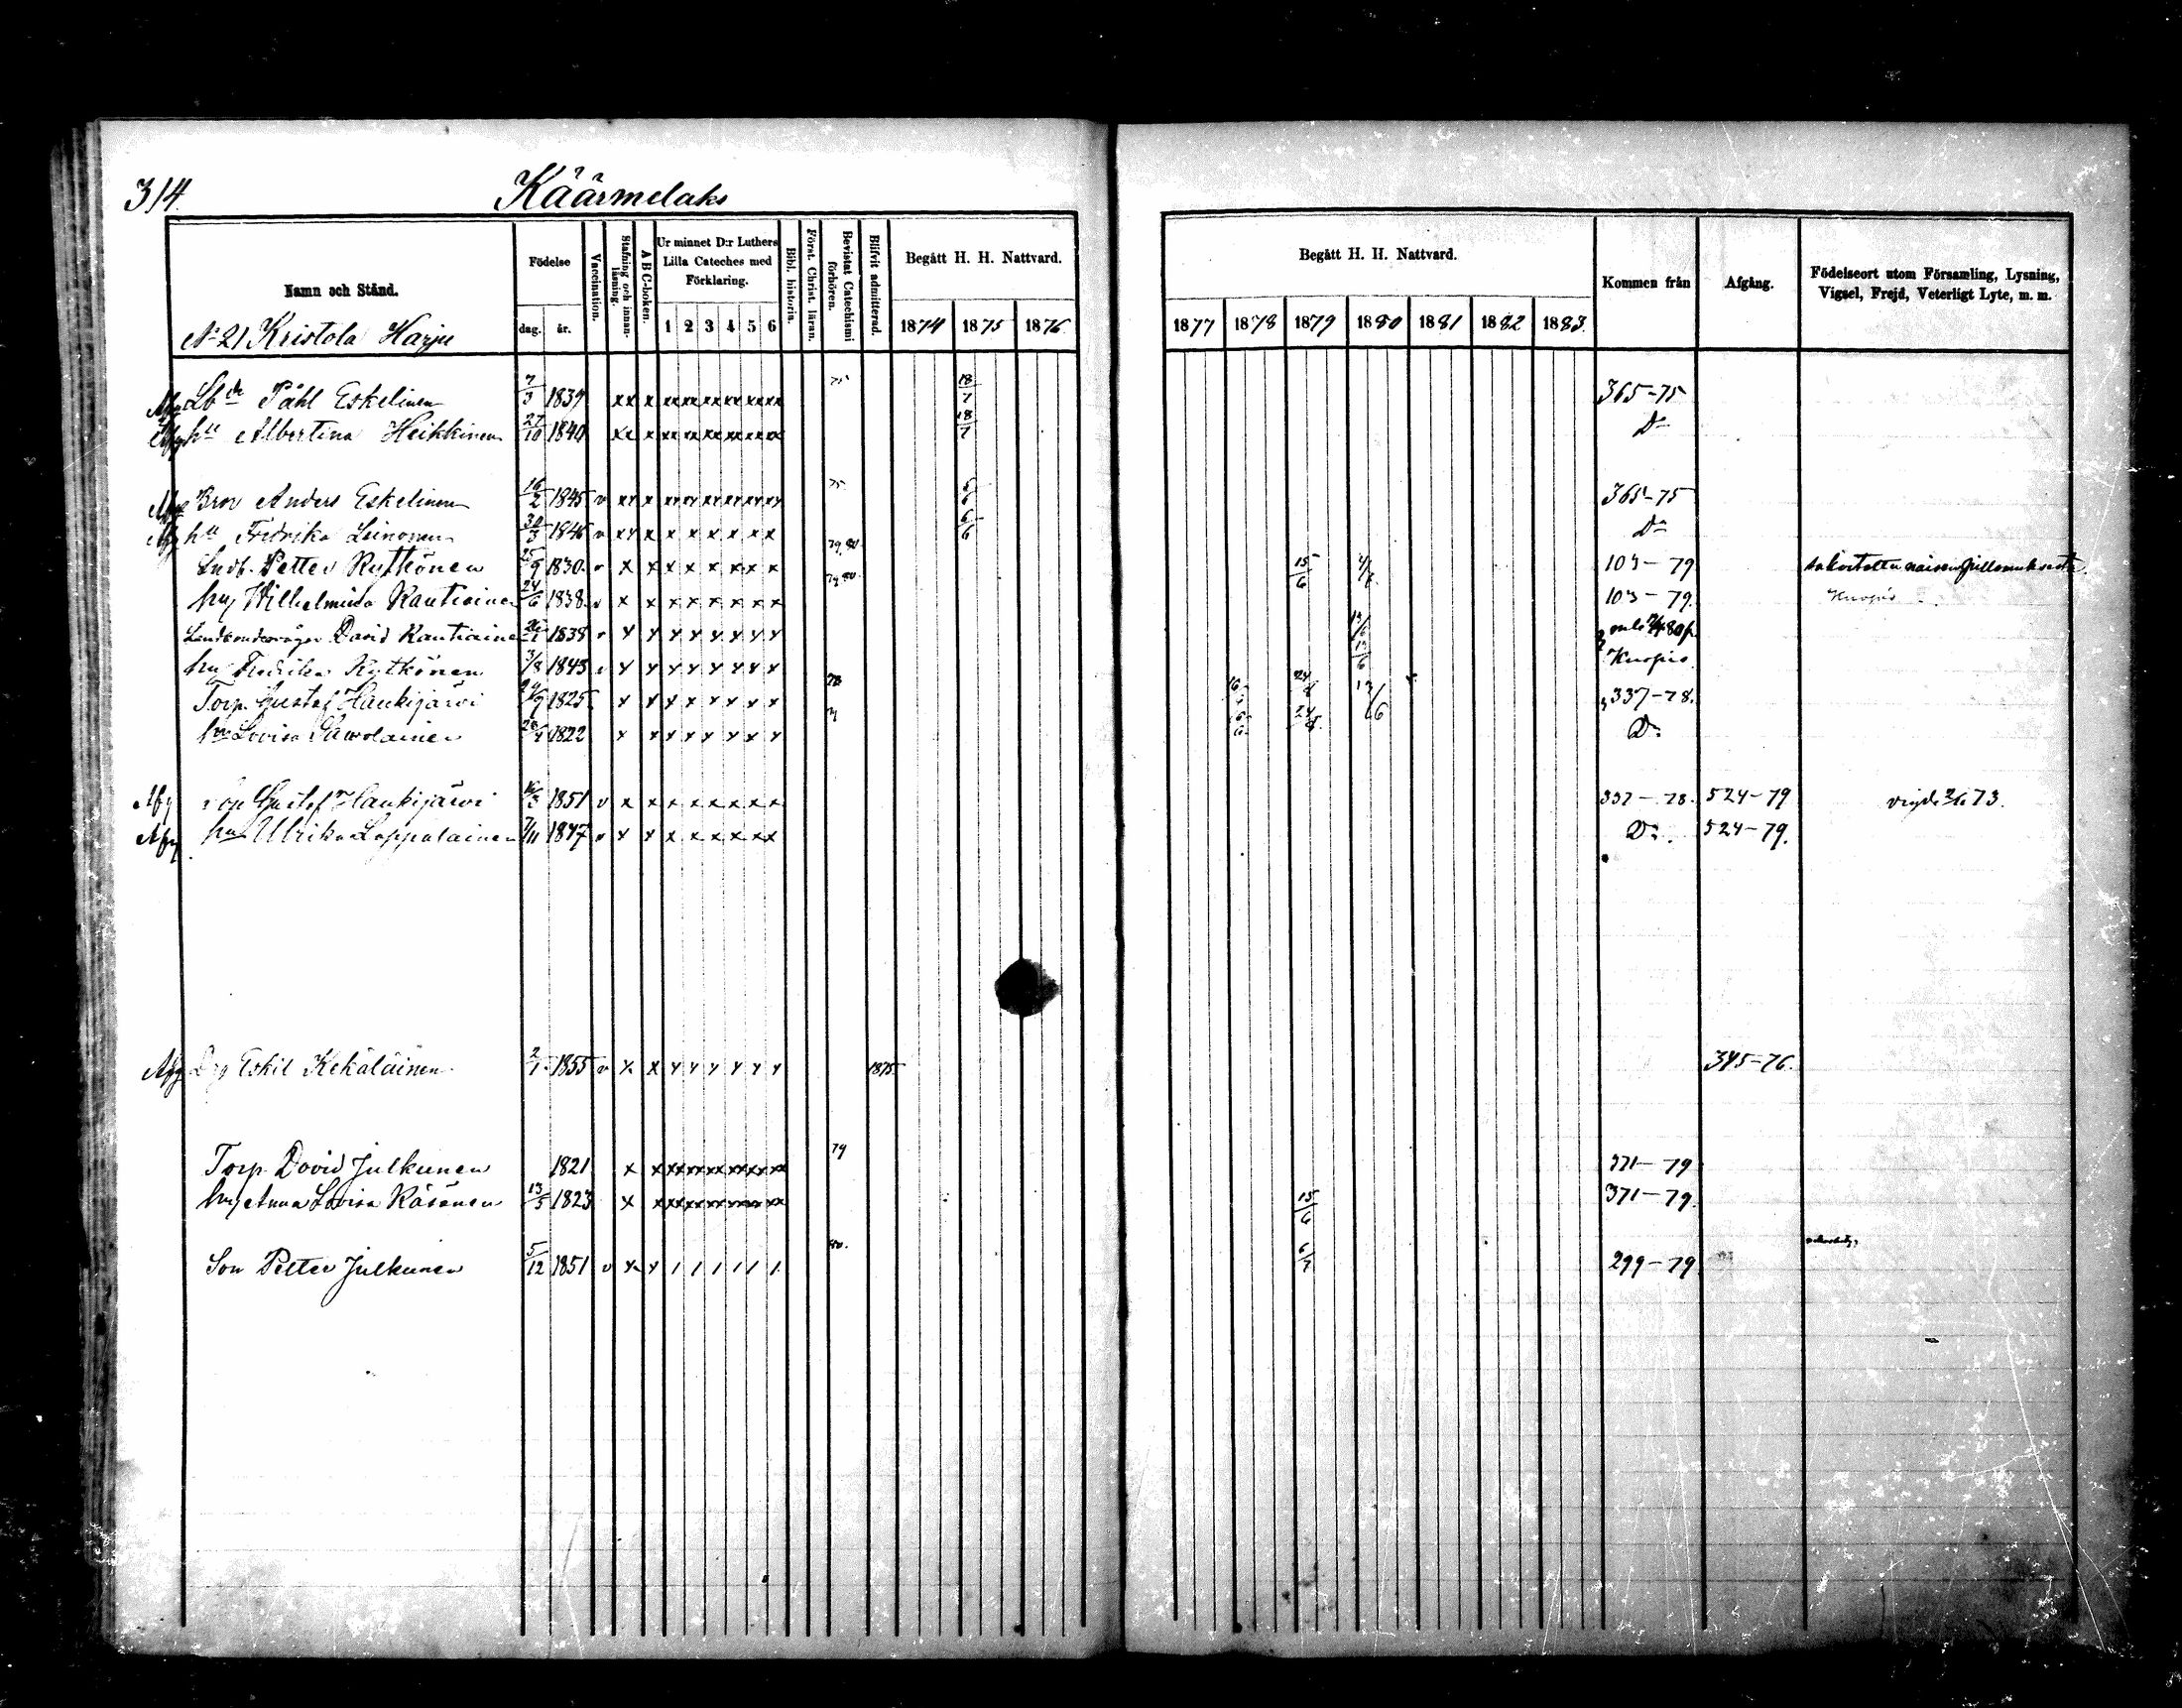 314.
Käärmelaks
Namn och Stånd.
Födelse
dag. år.
Vaccination.
Stafning och innanläsning.
A B C-boken.
Ur minnet D:r Luthers Lilla Cateches med Förklaring.
1 2 3 4 5 6
Bibl. historia.
Först. Christ. läran.
Bevistat Catechismi förhören.
Blifvit admitterad.
Begått H. H. Nattvard.
1874 1875 1876
Begått H. H. Nattvard.
1877 1878 1879 1880 1881 1882 1883.
Kommen från
Afgång.
Födelseort utom Församling, Lysning, Vigsel, Frejd, Veterligt Lyte, m. m.
N 21 Kristola Harju
Afg Lbde Påhl Eskelinen 7/3 1839 xx x xx xx xx xx xx xx 75 18/7 365-75
Afg hu Albertina Heikkinen 27/10 1840 xx x xx xx xx xx xx xx 18/7 Do
Afg Bror Anders Eskelinen 16/2 1845 v xx x xx xx xx xx xx xx 75 6/6 365-75
Afg hu Fredrika Leinonen 30/3 1846 v xx x x x x x x x 6/6 Do
Petter Rytkönen 25/9 1830 v x x x x x x x x 79,80 15/6 103-79
hu Wilhelmina Kautiainen 24/6 1838 v x x x x x x x x 79 80 103-79. Kuopio
David Kautiainen 1838 v x x x x x x x x 13/6
hu Fredrika Rytkönen 3/8 1843 v x x x x x x x x 13/6 Kuopio
Torp. Gustaf Haukijärvi 1825 x x x x x x x x 78 13/6 337-78.
hu Lovisa Sawolainen 1822 x x x x x x x x Do
Afg Gustaf Haukijärwi 1851 v x x x x x x x x 337-78. 524-79 vigde 73.
Afg hu Ulrika Lappalainen 7/11 1847 v x x x x x x x x Do 524-79.
Afg Eskil Kekäläinen 2/1 1855 v x x x x x x x x 1875 345-76.
Torp. David Julkunen 1821 x x xx xx xx xx xx xx 79 371-79
hu Anna Lovisa Räsänen 13/5 1823 x x xx xx xx xx xx xx 15/6 371-79.
Son Petter Julkunen 5/12 1851 v x x / / / / / / 80. 6/7 299-79